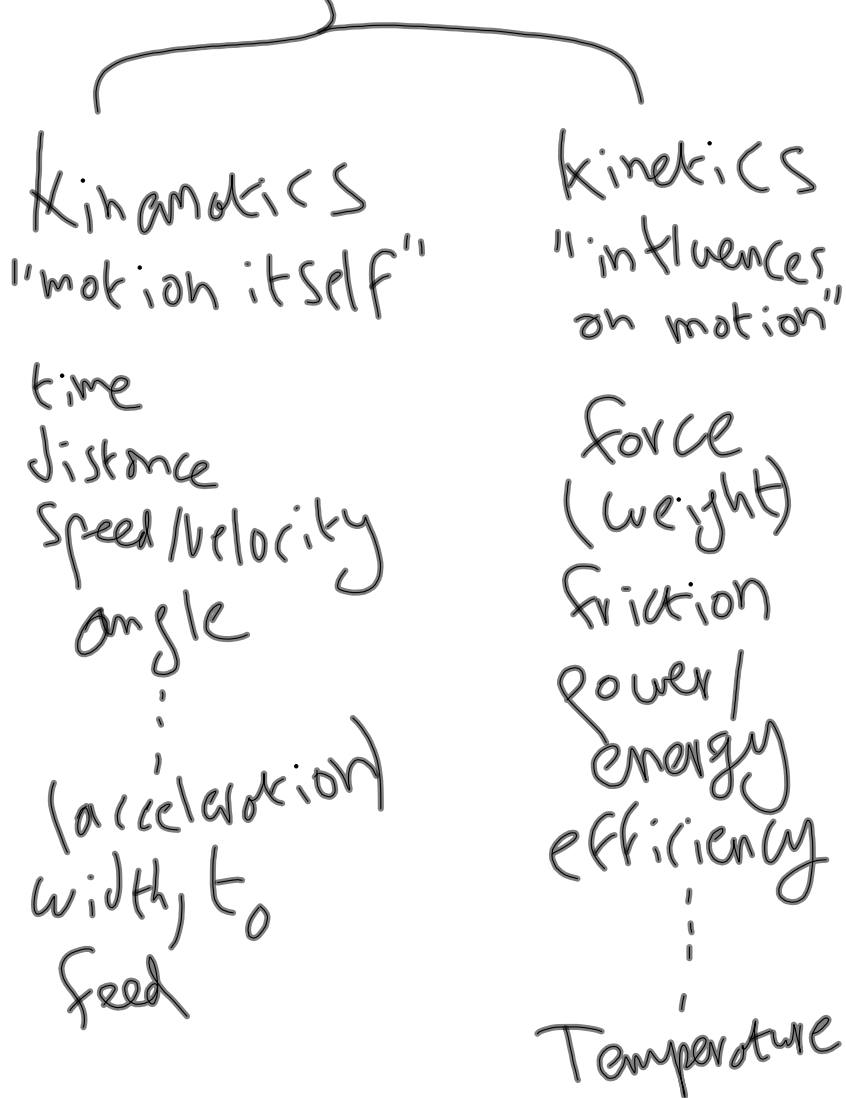 kinematics
"motion itself"
time
distance
speed/velocity
angle
(acceleration)
width, to
feed
kinetics
"influences
on motion"
force
(weight)
friction
power/
energy
efficiency
Temperature